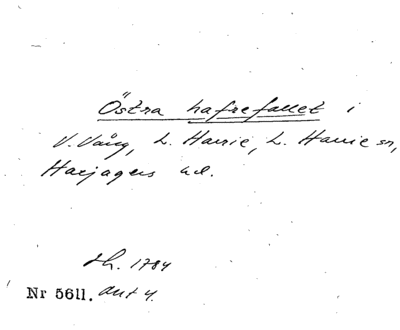 Östra hafrefallet i
V. Vång, L. Harrie, L. Harrie sn,
Harjagers hd.
sh. 1784
Nr 5611. ant 4.